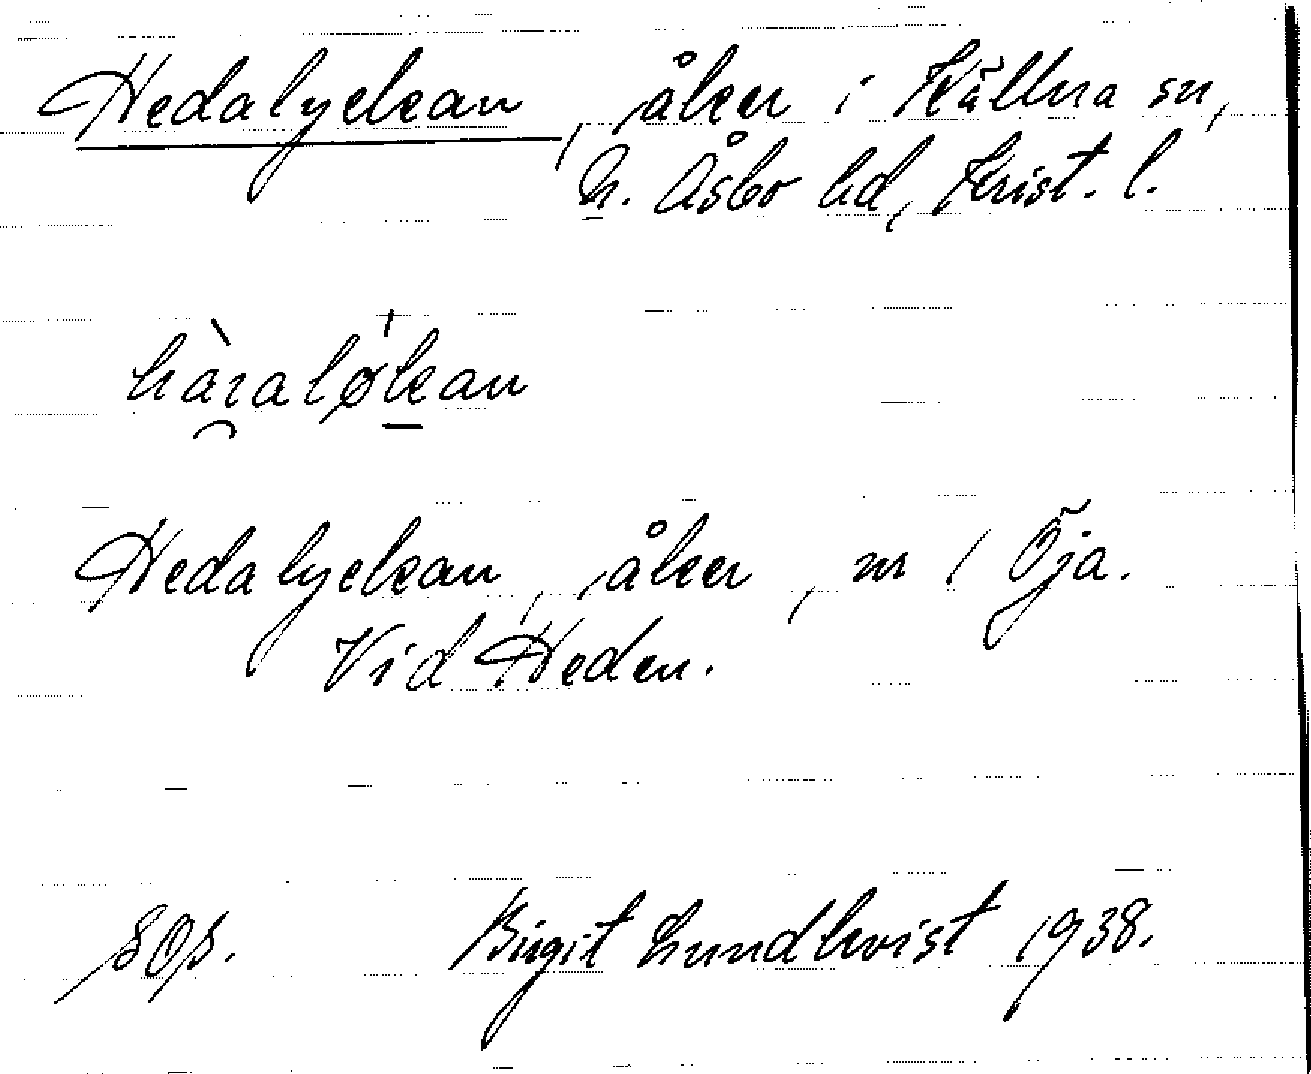 Hedalyckan, åker i Källna sn,
N. Åsbo hd, Krist. l.
hàraløkan
Hedalyckan, åker, nr 1 Öja.
Vid Heden.
Birgit Lundkvist 1938.